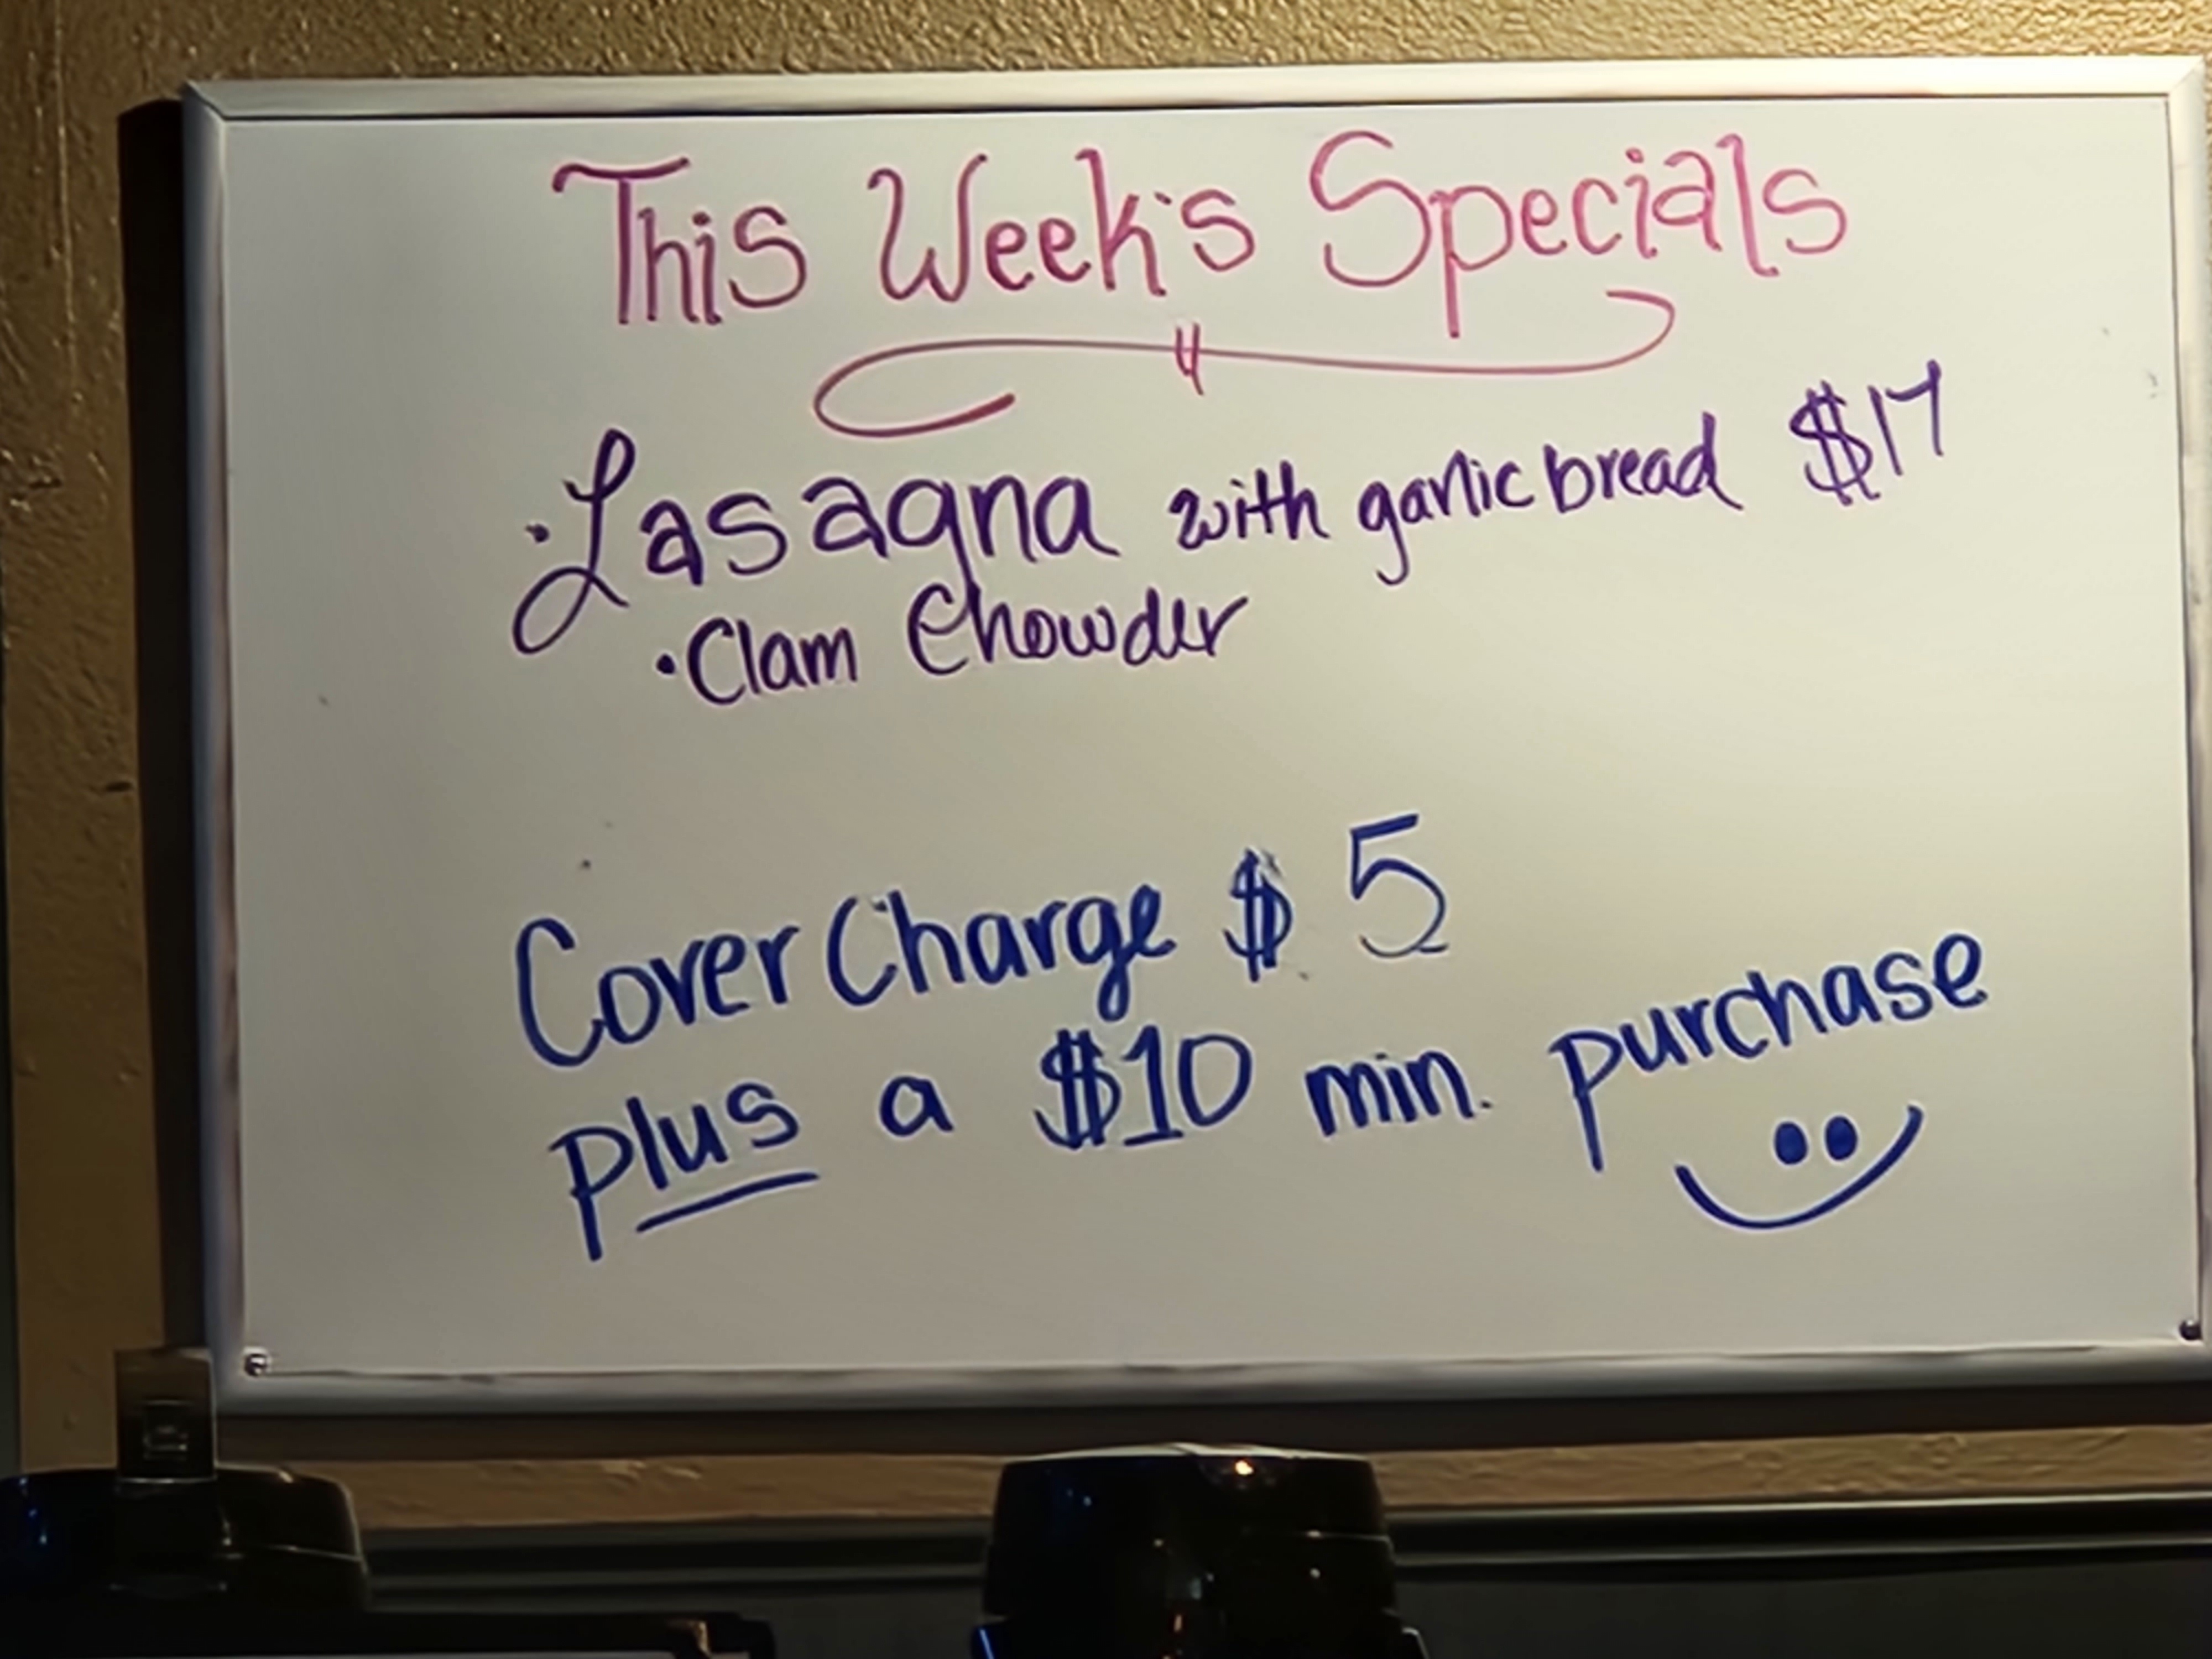 This Week's Specials
• Lasagna with garlic bread $17
• Clam Chowder
Cover Charge $ 5
plus a $10 min. purchase